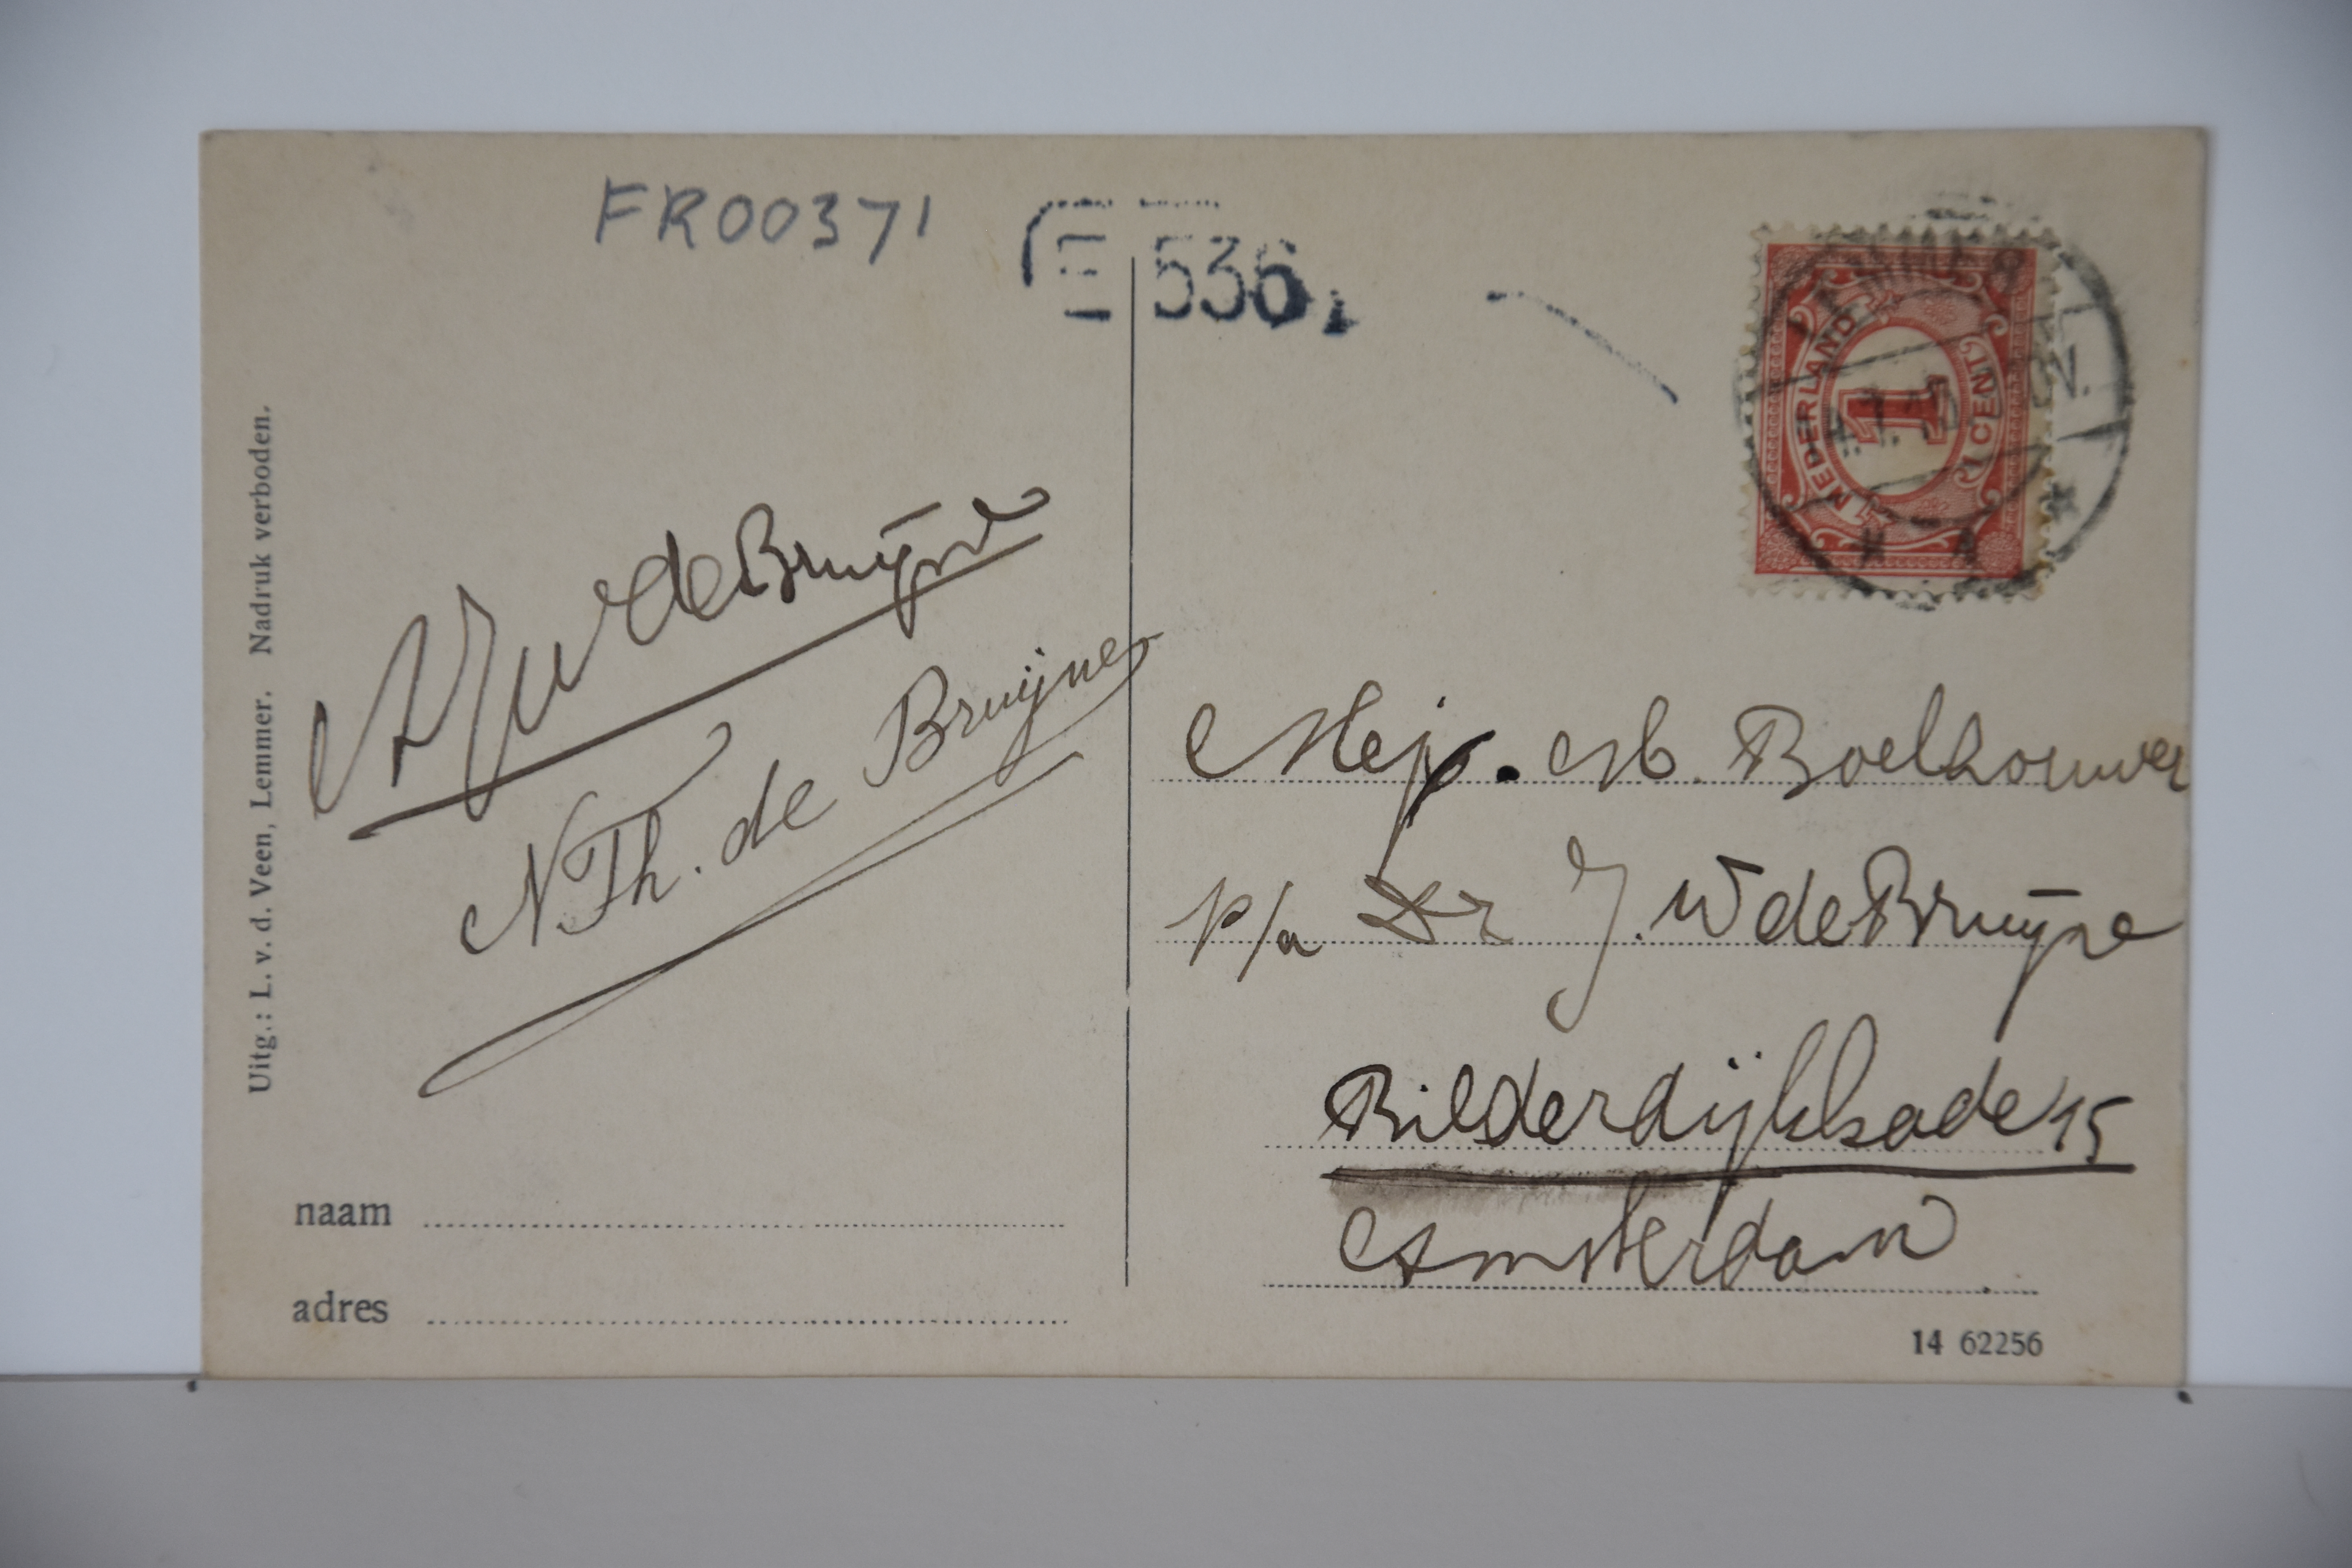 FR00371
E 536
NEDERLAND
1
1 CENT
LEMMER
Uitg.: L. v. d. Veen, Lemmer. Nadruk verboden.
de Bruijne
N Th. de Bruijne
Mej. M. Boelhouwer
p/a Dr J. W de Bruijne
Bilderdijkkade 15
Amsterdam
naam
adres
14 62256